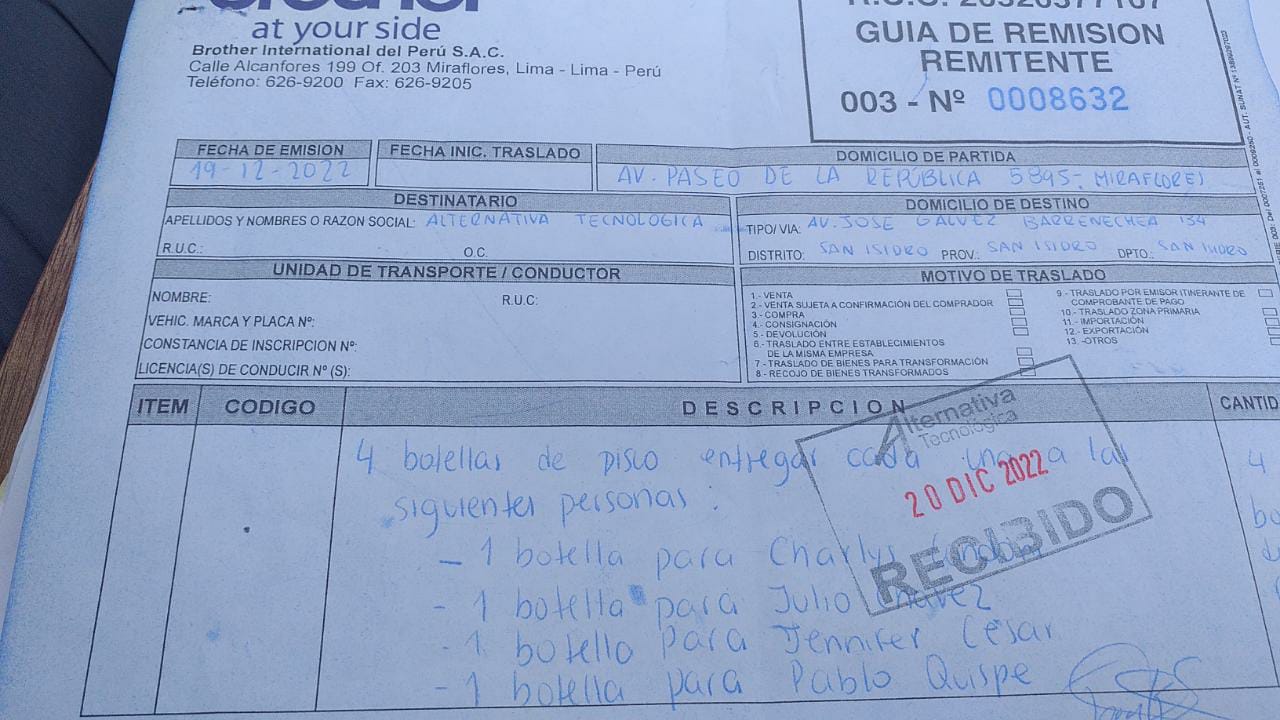 at your side
Brother International del Perú S.A.C.
Calle Alcanfores 199 Of. 203 Miraflores, Lima - Lima - Perú
Teléfono: 626-9200 Fax: 626-9205
GUIA DE REMISION
REMITENTE
003 - Nº 0008632
FECHA DE EMISION
19-12-2022
FECHA INIC. TRASLADO
DOMICILIO DE PARTIDA
AV. PASEO DE LA REPÚBLICA 5895- MIRAFLORES
DESTINATARIO
APELLIDOS Y NOMBRES O RAZON SOCIAL: ALTERNATIVA TECNOLOGICA
R.U.C.: O.C.
DOMICILIO DE DESTINO
TIPO/ VIA: AV. JOSE GALVEZ BARRENECHEA 134
DISTRITO: SAN ISIDRO PROV.: SAN ISIDRO DPTO.: SAN ISIDRO
UNIDAD DE TRANSPORTE / CONDUCTOR
NOMBRE: R.U.C:
VEHIC. MARCA Y PLACA Nº:
CONSTANCIA DE INSCRIPCION Nº:
LICENCIA(S) DE CONDUCIR Nº (S):
MOTIVO DE TRASLADO
1.- VENTA
2.- VENTA SUJETA A CONFIRMACIÓN DEL COMPRADOR
3.- COMPRA
4.- CONSIGNACIÓN
5.- DEVOLUCIÓN
6.- TRASLADO ENTRE ESTABLECIMIENTOS
DE LA MISMA EMPRESA
7 - TRASLADO DE BIENES PARA TRANSFORMACIÓN
8 - RECOJO DE BIENES TRANSFORMADOS
9.- TRASLADO POR EMISOR ITINERANTE DE
COMPROBANTE DE PAGO
10.- TRASLADO ZONA PRIMARIA
11.- IMPORTACIÓN
12.- EXPORTACIÓN
13. -OTROS
ITEM CODIGO DESCRIPCION CANTID
4 botellas de pisco entregar cada una a las 4
siguientes personas:
- 1 botella para Charlys
- 1 botella para Julio Chavez
- 1 botella para Jennifer Cesar
- 1 botella para Pablo Quispe
Alternativa
Tecnológica
20 DIC 2022
RECIBIDO